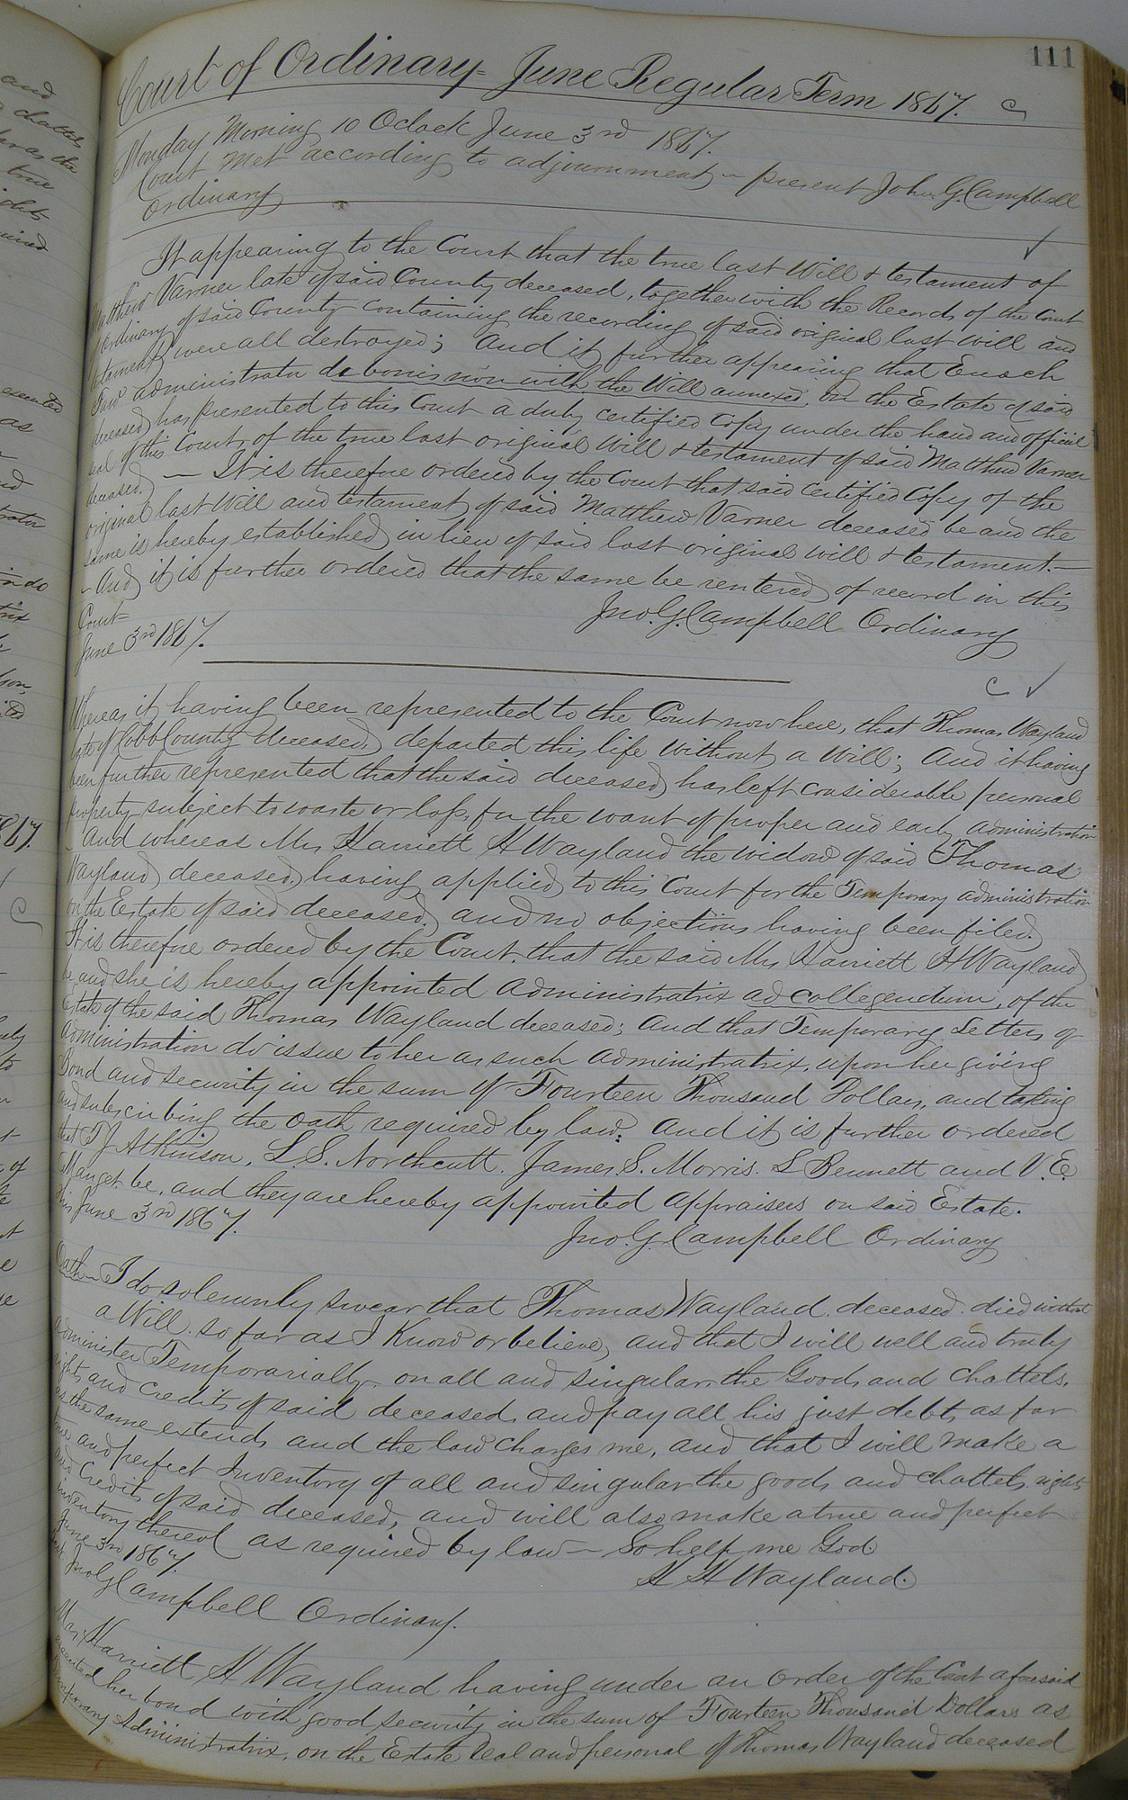 111
Court of Ordinary - June Regular Term 1867.
Monday Morning 10 Oclock June 3rd 1867.
Court met according to adjournment - present John G. Campbell
Ordinary
It appearing to the Court that the true last Will & testament of
Matthew Varner late of said County deceased, together with the Records of the Court
of Ordinary of said County containing the recording of said original last will and
testament were all destroyed; And it further appearing that Enoch
administrator de bonis non with the Will annexed, on the Estate of said
deceased has presented to this Court a duly certified Copy under the hand and official
seal of this Court, of the true last original Will & testament of said Matthew Varner
deceased. — It is therefore ordered by the Court that said certified Copy of the
original last Will and testament of said Matthew Varner deceased be and the
same is hereby established in lieu of said last original will & testament. —
- And it is further ordered that the same be rentered of record in this
Court -
June 3rd 1867.
Jno. G. Campbell Ordinary
Whereas it having been represented to the Court now here, that Thomas Wayland
late of Cobb County deceased, departed this life without a Will; And it having
been further represented that the said deceased has left considerable personal
property subject to waste or loss, for the want of proper and early administration
And whereas Mrs Harriett H Wayland the widow of said Thomas
Wayland deceased, having applied to this Court for the Temporary administration
on the Estate of said deceased, and no objections having been filed.
It is therefore ordered by the Court that the said Mrs Harriett H Wayland
be, and she is hereby appointed administratrix ad collegendum, of the
estate of the said Thomas Wayland deceased; And that Temporary Letters of
administration do issue to her as such administratrix, upon her giving
Bond and security in the sum of Fourteen Thousand Dollars, and taking
and subscribing the oath required by law. And it is further ordered
that T J Atkinson, L. S. Northcutt, James S. Morris. L Bennett and V. E.
Manget be, and they are hereby appointed appraisers on said Estate.
this June 3rd 1867.
Jno. G. Campbell Ordinary
Oath - I do solemnly swear that Thomas Wayland deceased died without
a Will so far as I Know or believe, and that I will well and truly
administer Temporarially on all and singular the Goods and Chattels,
rights and Credits of said deceased and pay all his just debts as far
as the same extends and the law Charges me, and that I will make a
true and perfect Inventory of all and singular the goods and chattels rights
and credits of said deceased, and will also make a true and perfect
inventory thereof as required by law — So help me God.
June 3rd 1867.
H H Wayland
Jno G Campbell Ordinary.
Mrs Harriett H Wayland having under an order of the Court aforesaid
presented her bond with good security in the sum of Fourteen Thousand Dollars as
temporary Administratrix, on the Estate real and personal of Thomas Wayland deceased